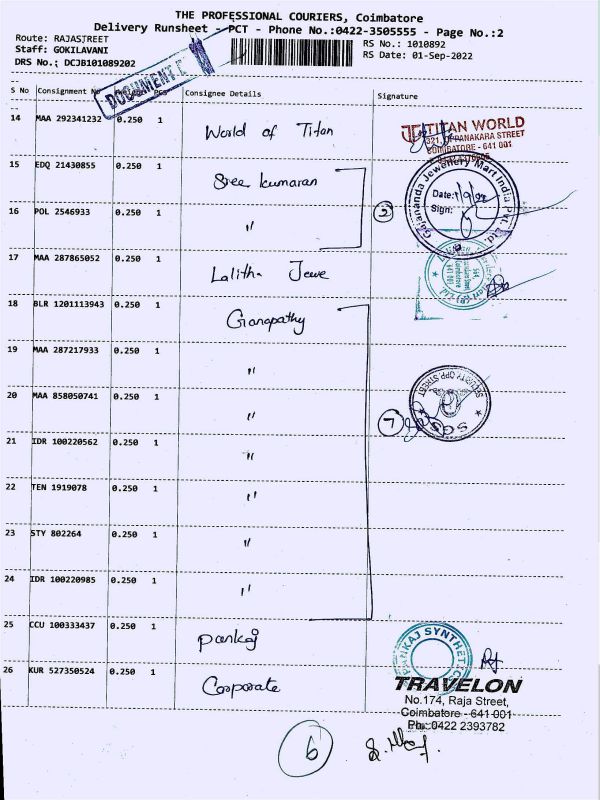 THE PROFESSIONAL COURIERS, Coimbatore
Delivery Runsheet - PCT - Phone No.:0422-3505555 - Page No.:2
Route: RAJASTREET
Staff: GOKILAVANI
DRS No.: DCJB101089202
RS No.: 1010892
RS Date: 01-Sep-2022
DOCUMENT
S No Consignment No PCS Consignee Details Signature
14 MAA 292341232 0.250 1 World of Titan
TITAN WORLD
321, OPPANAKARA STREET
COIMBATORE - 641 001
15 EDQ 21430855 0.250 1 Sree kumaran
Gajananda Jewellery Mart India Pvt. Ltd.
Date: 1/9/22
Sign:
2
16 POL 2546933 0.250 1 "
17 MAA 287865052 0.250 1 Lalitha Jewe
18 BLR 1201113943 0.250 1 Gianapathy
19 MAA 287217933 0.250 1 "
20 MAA 858050741 0.250 1 "
7
SECURITY OPP STREET
SGS
21 IDR 100220562 0.250 1 "
22 TEN 1919078 0.250 1 "
23 STY 802264 0.250 1 "
24 IDR 100220985 0.250 1 "
25 CCU 100333437 0.250 1 Pankaj
PANKAJ SYNTHETICS
26 KUR 527350524 0.250 1 Corporate
TRAVELON
No.174, Raja Street,
Coimbatore - 641 001
Ph.: 0422 2393782
6